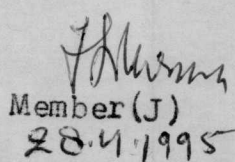 Member(J)
28.4.1995